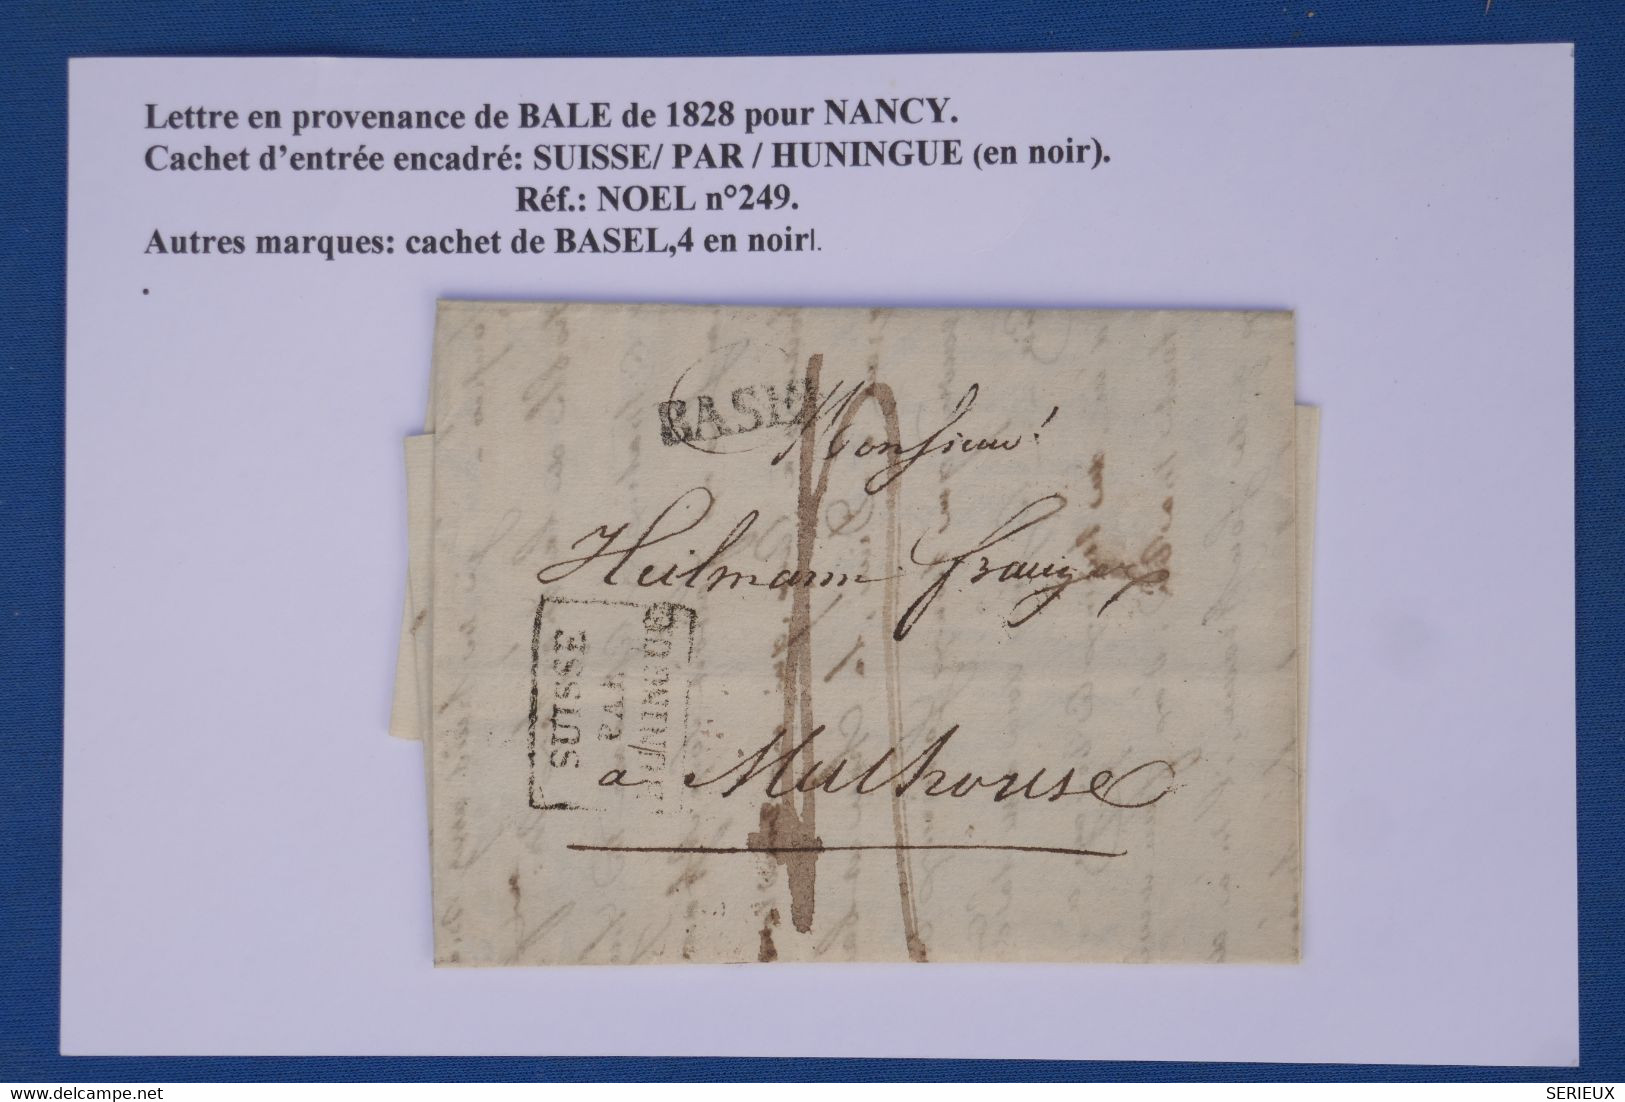 Lettre en provenance de BALE de 1828 pour NANCY.
Cachet d'entrée encadré: SUISSE/ PAR / HUNINGUE (en noir).
Réf.: NOEL n°249.
Autres marques: cachet de BASEL,4 en noir.
BASEL
Monsieur
Heilmann
SUISSE
PAR
HUNINGUE
a Mulhouse
SERIEUX